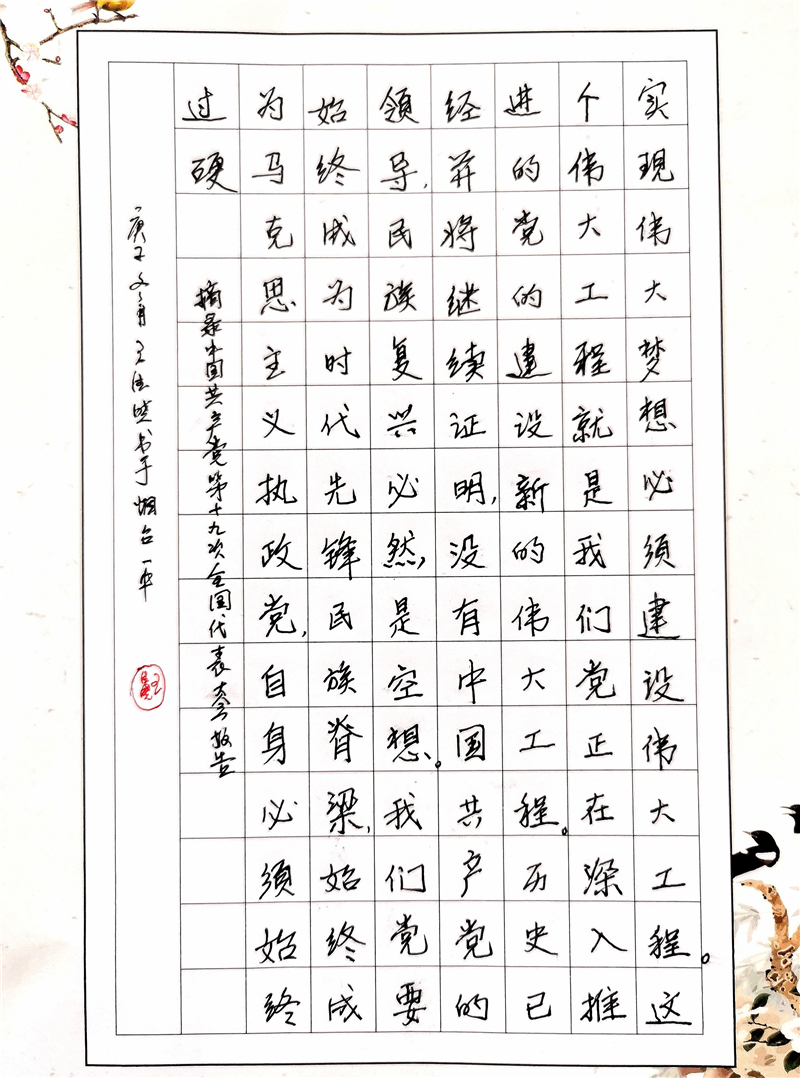 实现伟大梦想必须建设伟大工程。这
个伟大工程就是我们党正在深入推
进的党的建设新的伟大工程。历史已
经并将继续证明,没有中国共产党的
领导,民族复兴必然,是空想。我们党要
始终成为时代先锋,民族脊梁,始终成
为马克思主义执政党,自身必须始终
过硬
摘录中国共产党第十九次全国代表大会报告
庚子 书于烟台